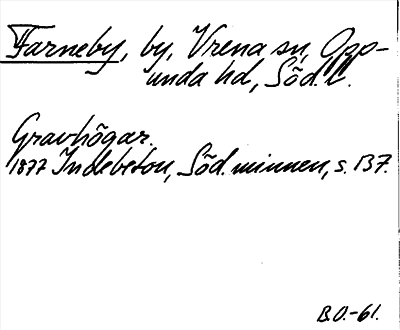 Farneby, by, Vrena sn, Opp-
unda hd, Söd. l.
Gravhögar.
1877 Indebetou, Söd. minnen, s. 137.
B.O.-61.